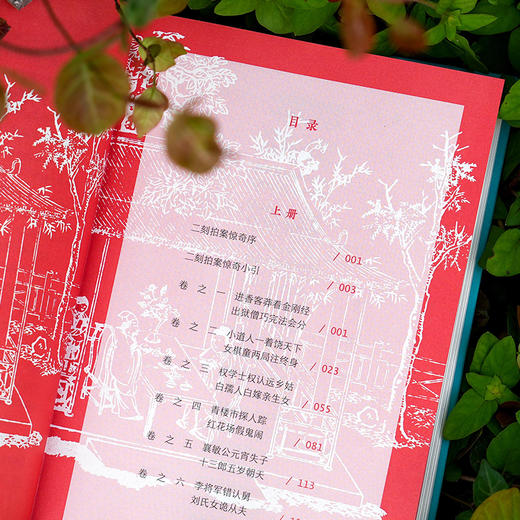 目录
上册
二刻拍案惊奇序 / 001
二刻拍案惊奇小引 / 003
卷之一 进香客莽看金刚经
出狱僧巧完法会分 / 001
卷之二 小道人一着饶天下
女棋童两局注终身 / 023
卷之三 权学士权认远乡姑
白孺人白嫁亲生女 / 055
卷之四 青楼市探人踪
红花场假鬼闹 / 081
卷之五 襄敏公元宵失子
十三郎五岁朝天 / 113
卷之六 李将军错认舅
刘氏女诡从夫